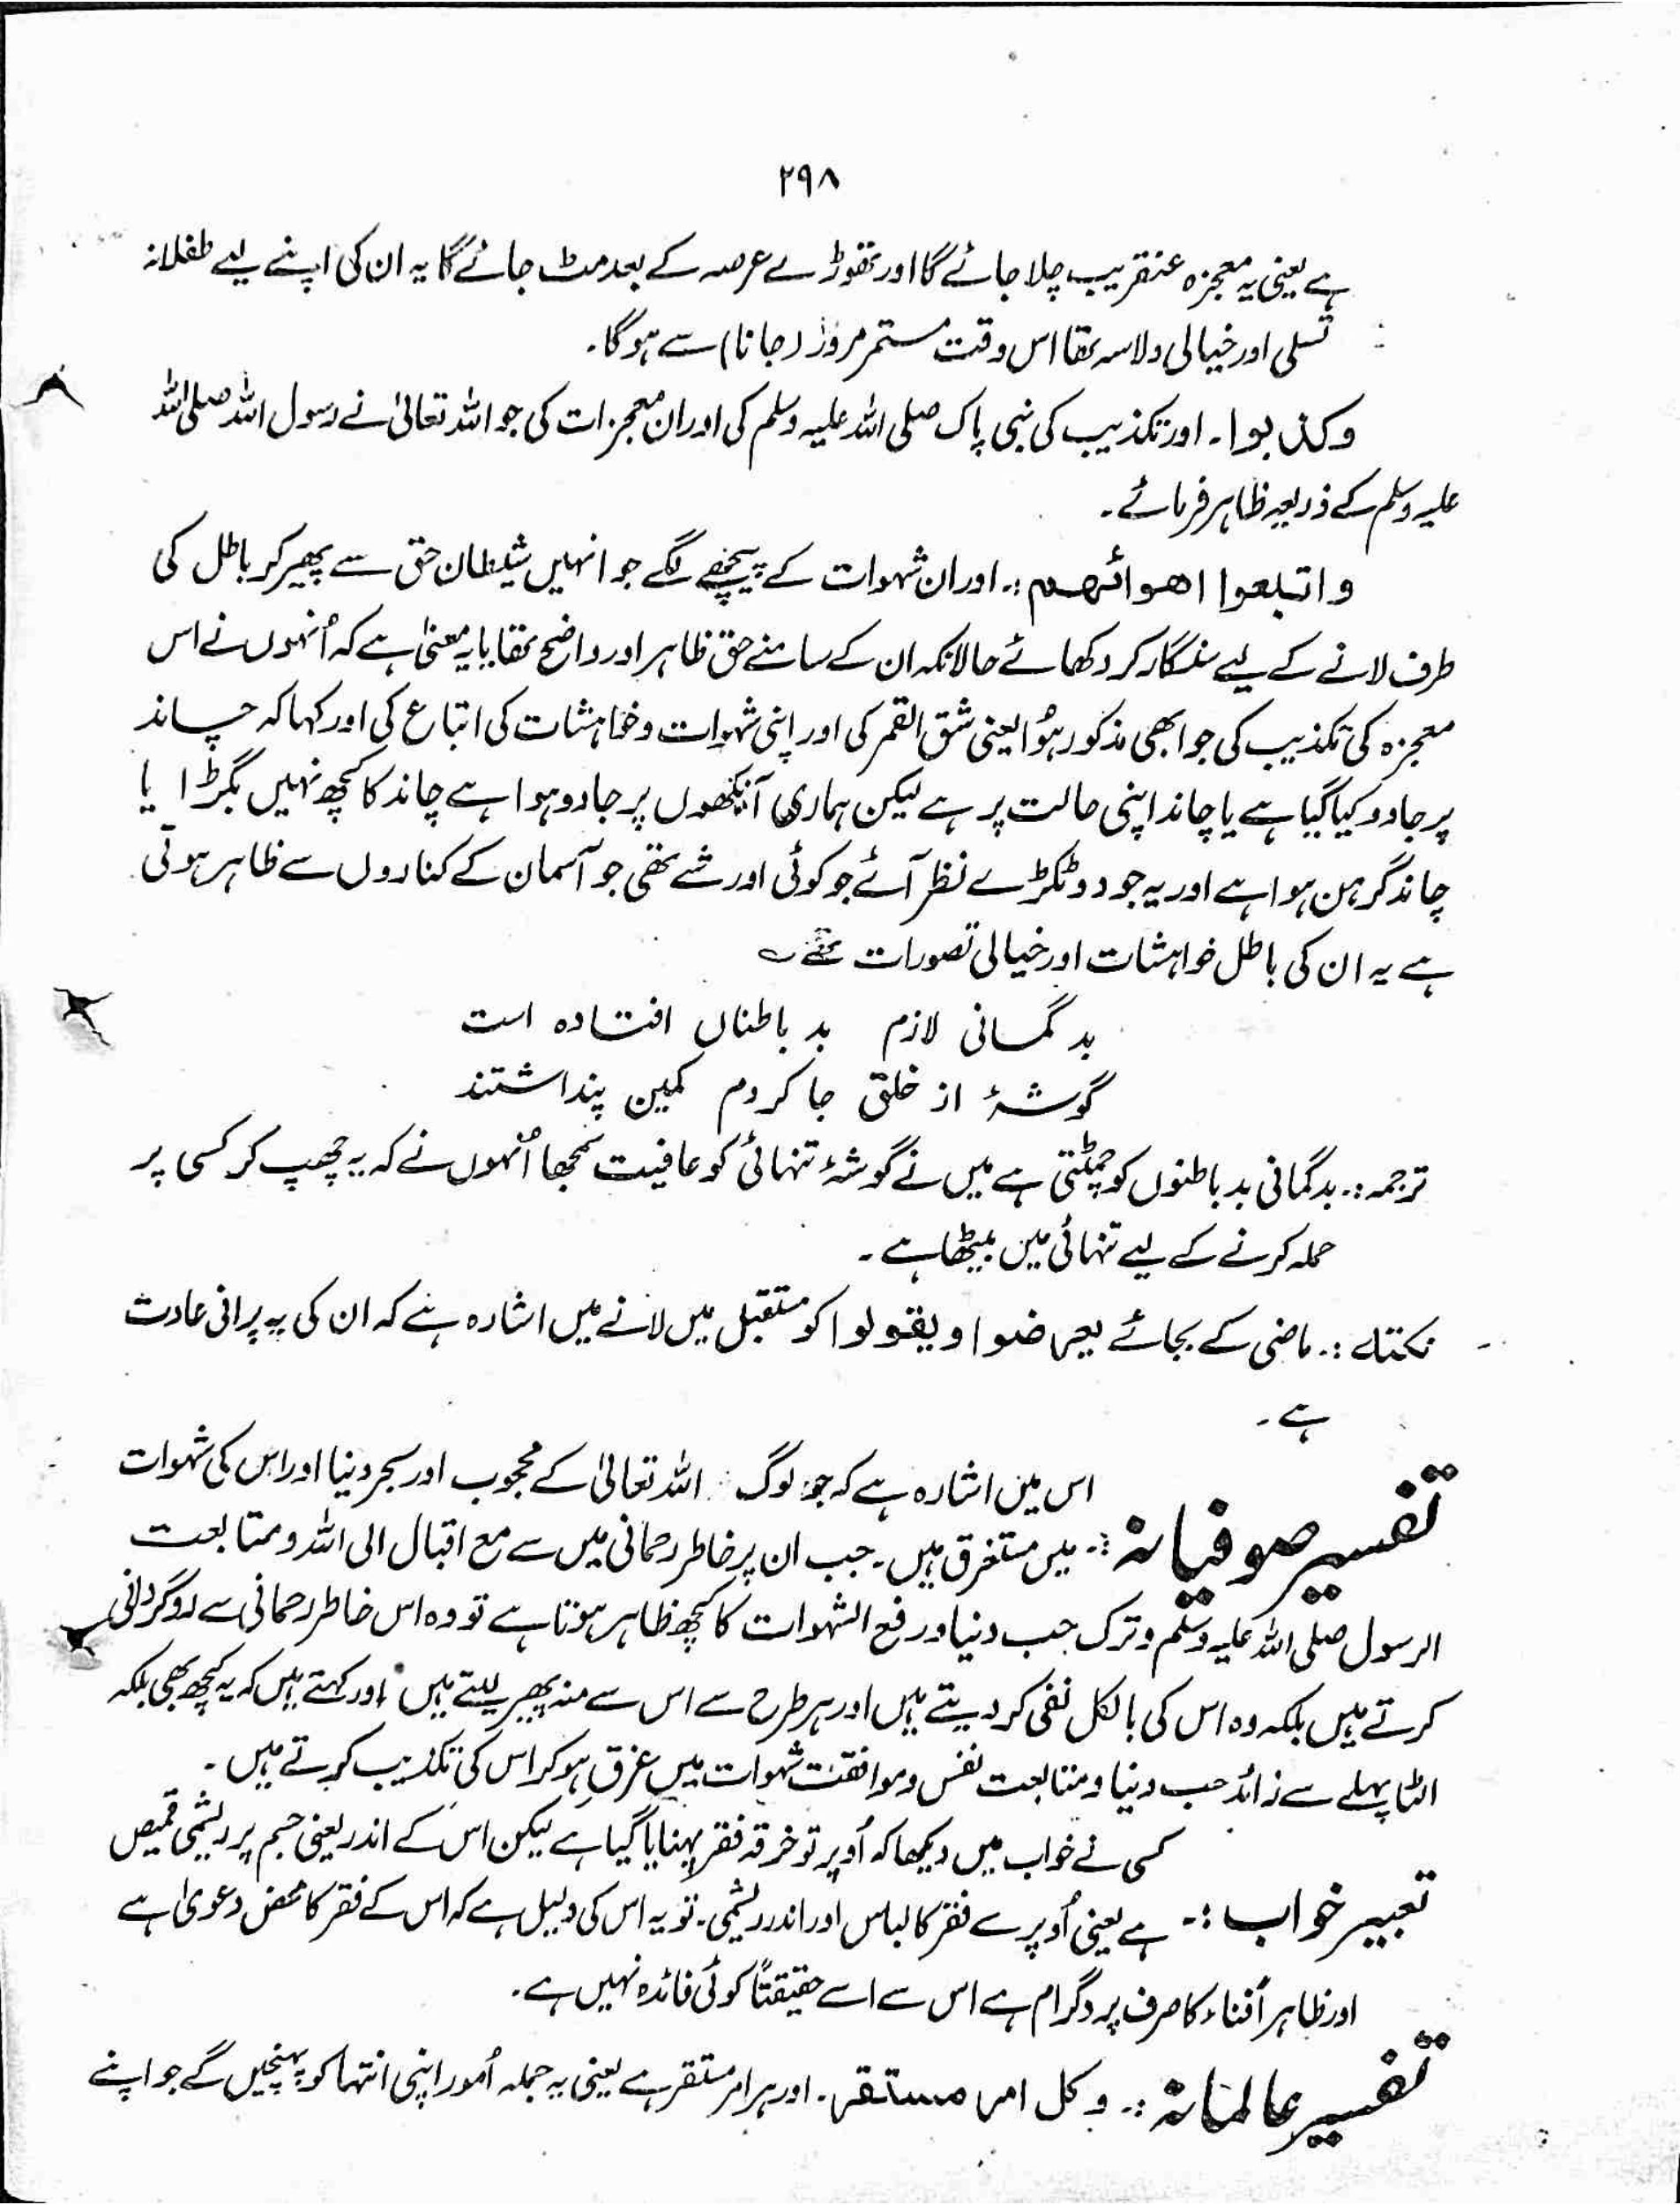 ۲۹۸
ہے یعنی یہ معجزہ عنقریب چلا جائے گا اور تھوڑے عرصہ کے بعد مٹ جائے گا یہ ان کی اپنے لیے طفلانہ
تسلی اور خیالی دلاسہ تھا اس وقت مستمر مروڑ (جانا) سے ہوگا۔
وکذبوا۔ اور تکذیب کی نبی پاک صلی اللہ علیہ وسلم کی اور ان معجزات کی جو اللہ تعالیٰ نے رسول اللہ صلی اللہ
علیہ وسلم کے ذریعہ ظاہر فرمائے۔
واتبعوا اھوائھم :۔ اور ان شہوات کے پیچھے لگے جو انہیں شیطان حق سے پھیر کر باطل کی
طرف لانے کے لیے سنگار کر دکھائے حالانکہ ان کے سامنے حق ظاہر اور واضح تھا یا یہ معنیٰ ہے کہ اُنہوں نے اس
معجزہ کی تکذیب کی جو ابھی مذکور ہُوا یعنی شق القمر کی اور اپنی شہوات و خواہشات کی اتباع کی اور کہا کہ چاند
پر جادو کیا گیا ہے یا چاند اپنی حالت پر ہے لیکن ہماری آنکھوں پر جادو ہوا ہے چاند کا کچھ نہیں بگڑا یا
چاند گرہن ہوا ہے اور یہ جو دو ٹکڑے نظر آئے جو کوئی اور شے تھی جو آسمان کے کناروں سے ظاہر ہوئی
ہے یہ ان کی باطل خواہشات اور خیالی تصورات تھے ؎
بد گمانی لازم بد باطناں افتادہ است
گوشۂ از خلق جا کردم کمین پنداشتند
ترجمہ :۔ بدگمانی بد باطنوں کو چمٹتی ہے میں نے گوشۂ تنہائی کو عافیت سمجھا اُنہوں نے کہ یہ چھپ کر کسی پر
حملہ کرنے کے لیے تنہائی میں بیٹھا ہے۔
نکتہ :۔ ماضی کے بجائے یعرضوا ویقولوا کو مستقبل میں لانے میں اشارہ ہے کہ ان کی یہ پرانی عادت
ہے۔
اس میں اشارہ ہے کہ جو لوگ اللہ تعالیٰ کے محجوب اور سحر دنیا اور اس کی شہوات
تفسیر صوفیانہ :۔ میں مستغرق ہیں۔ جب ان پر خاطر رحمانی میں سے مع اقبال الی اللہ و متابعت
الرسول صلی اللہ علیہ وسلم و ترک حب دنیا و رفع الشہوات کا کچھ ظاہر ہوتا ہے تو وہ اس خاطر رحمانی سے روگردانی
کرتے ہیں بلکہ وہ اس کی بالکل نفی کر دیتے ہیں اور ہر طرح سے اس سے منہ پھیر لیتے ہیں اور کہتے ہیں کہ یہ کچھ بھی بلکہ
الٹا پہلے سے زائد حب دنیا و متابعت نفس و موافقت شہوات میں غرق ہو کر اس کی تکذیب کرتے ہیں۔
کسی نے خواب میں دیکھا کہ اُوپر تو خرقہ فقر پہنایا گیا ہے لیکن اس کے اندر یعنی جسم پر ریشمی قمیص
تعبیر خواب :۔ ہے یعنی اُوپر سے فقر کا لباس اور اندر ریشمی۔ تو یہ اس کی دلیل ہے کہ اس کے فقر کا محض دعویٰ ہے
اور ظاہراً فناء کا صرف پروگرام ہے اس سے اسے حقیقتاً کوئی فائدہ نہیں ہے۔
تفسیر عالمانہ :۔ وکل امر مستقر۔ اور ہر امر مستقر ہے یعنی یہ جملہ اُمور اپنی انتہا کو پہنچیں گے جو اپنے